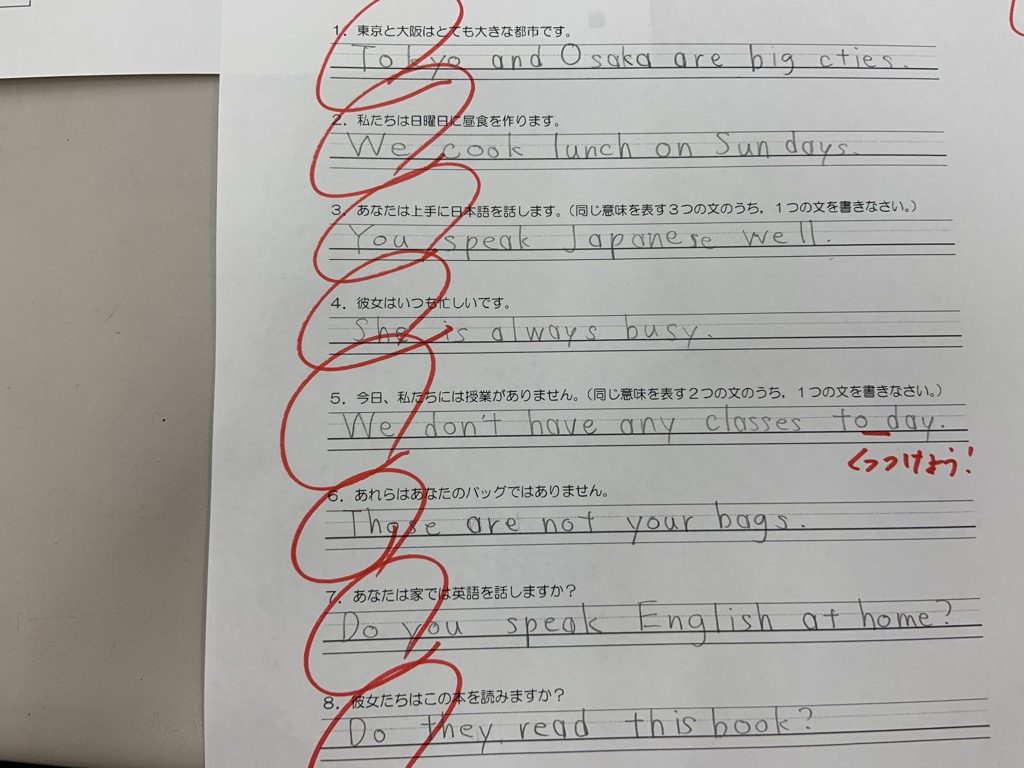 1. 東京と大阪はとても大きな都市です。
Tokyo and Osaka are big cties.
2. 私たちは日曜日に昼食を作ります。
We cook lunch on Sundays.
3. あなたは上手に日本語を話します。(同じ意味を表す3つの文のうち,1つの文を書きなさい。)
You speak Japanese well.
4. 彼女はいつも忙しいです。
She is always busy.
5. 今日、私たちには授業がありません。(同じ意味を表す2つの文のうち,1つの文を書きなさい。)
We don't have any classes to day.
くっつけよう!
6. あれらはあなたのバッグではありません。
Those are not your bags.
7. あなたは家では英語を話しますか?
Do you speak English at home?
8. 彼女たちはこの本を読みますか?
Do they read this book?